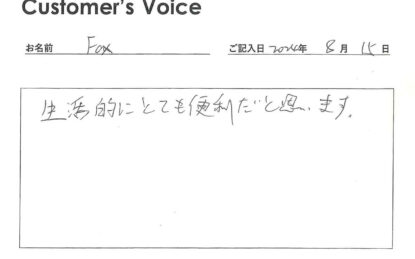 Customer's Voice
お名前 Fox ご記入日 2024年 8月 15日
生活的にとても便利だと思います。